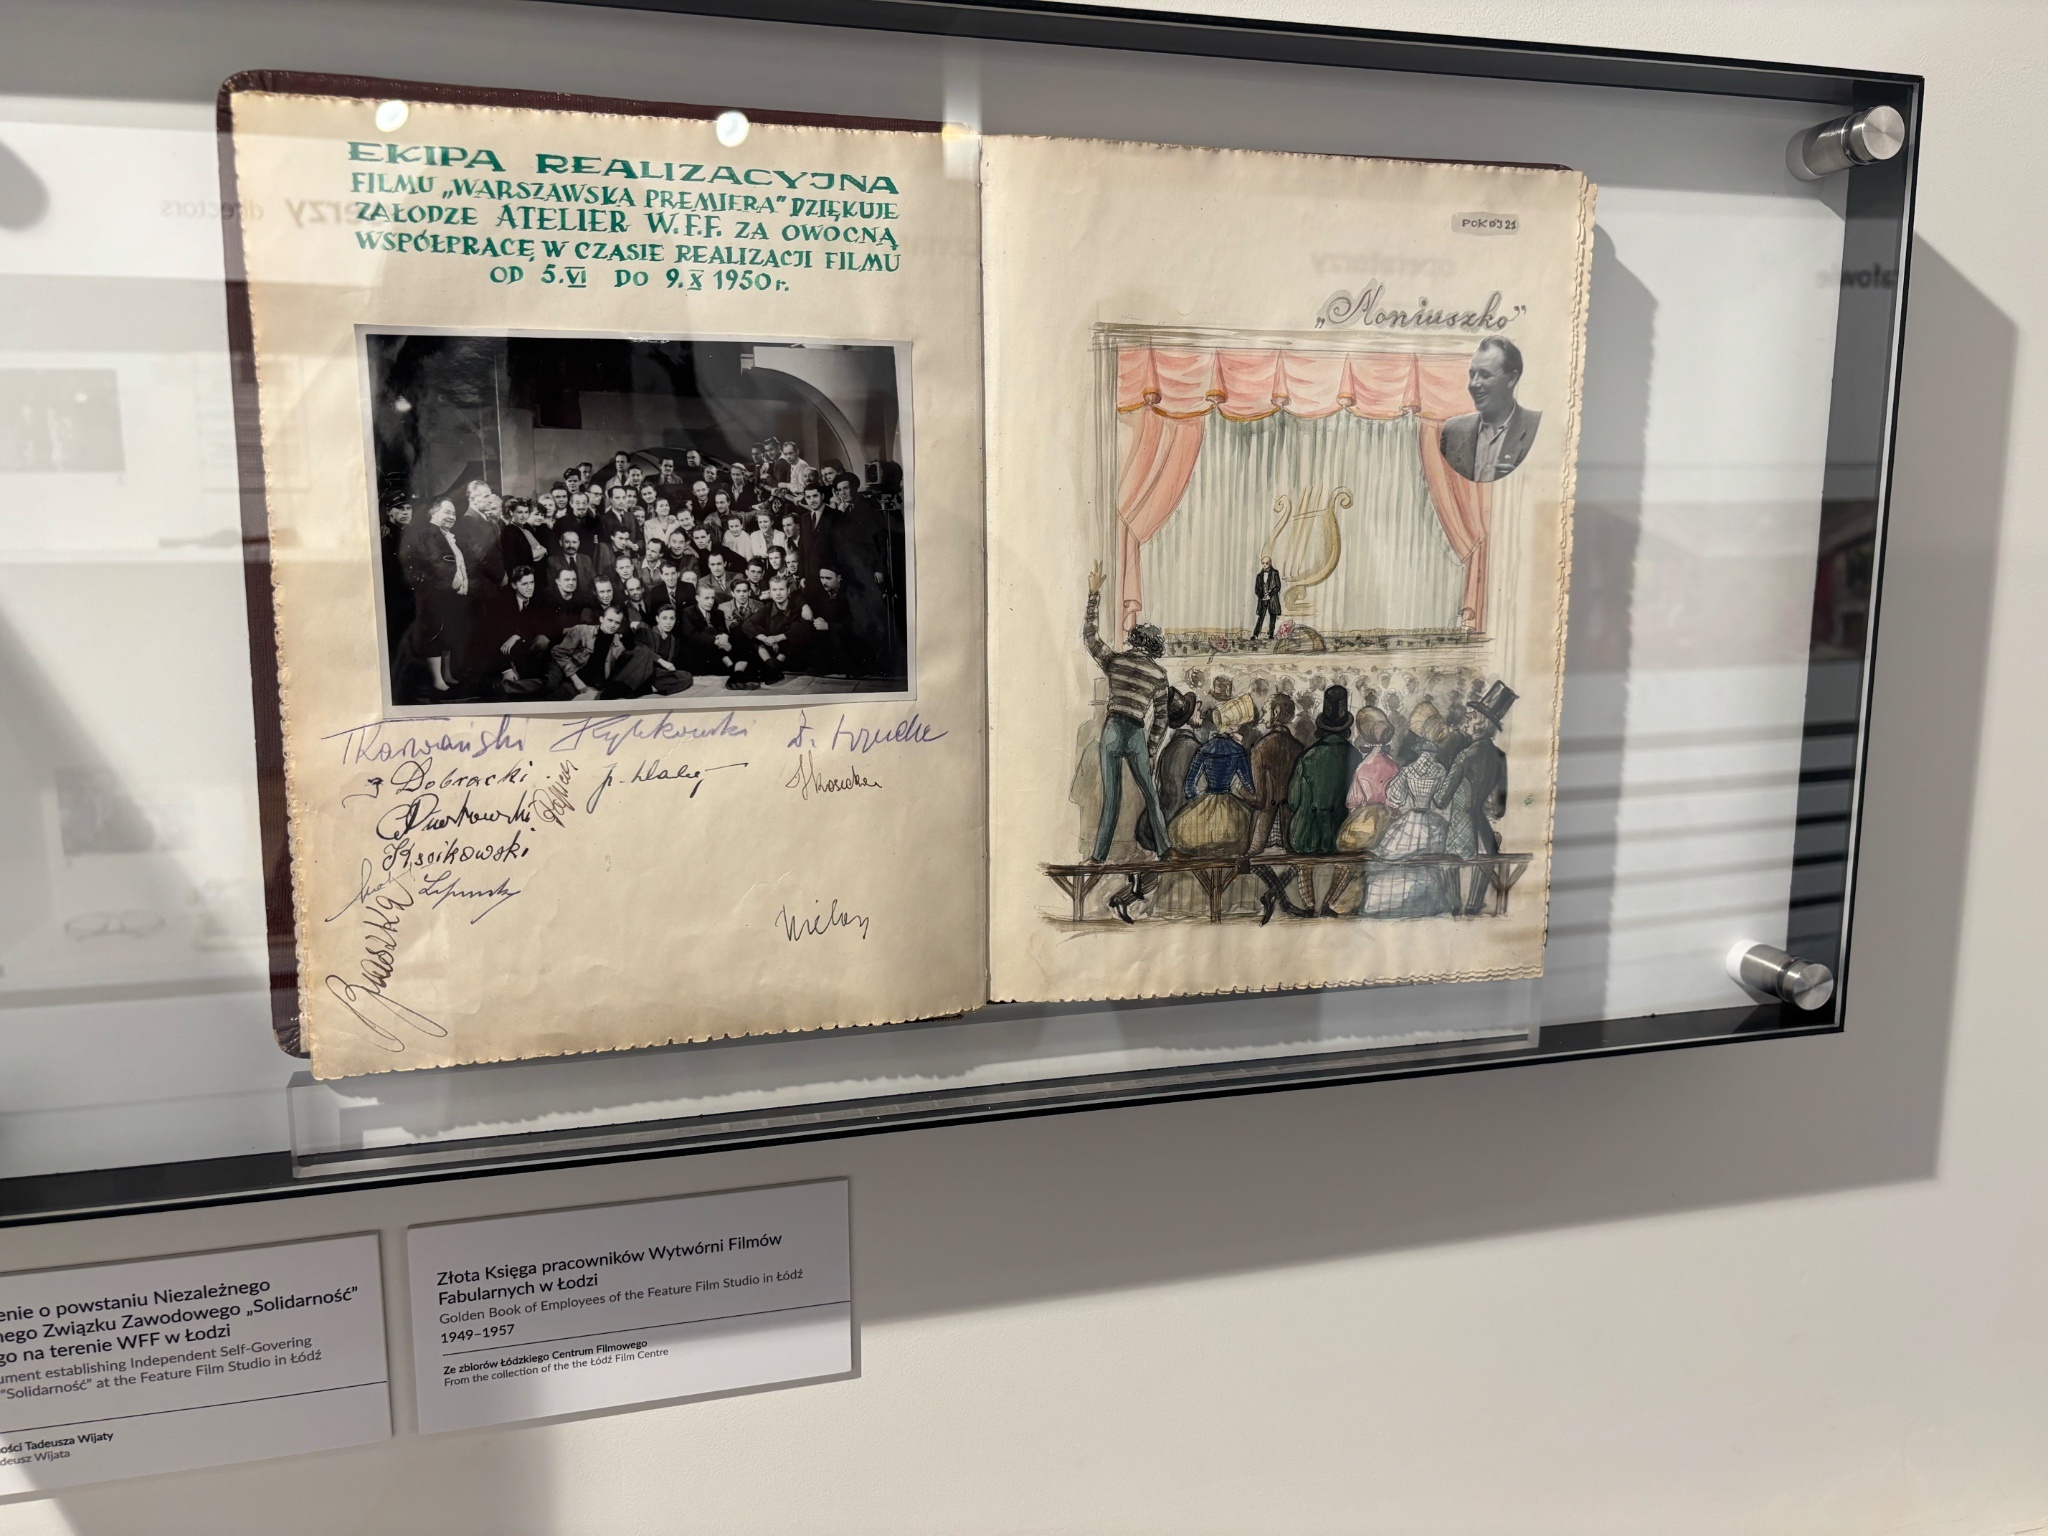 EKIPA REALIZACYJNA
FILMU „WARSZAWSKA PREMIERA" DZIĘKUJE
ZAŁODZE ATELIER W.F.F. ZA OWOCNĄ
WSPÓŁPRACĘ W CZASIE REALIZACJI FILMU
OD 5.VI DO 9.X 1950 r.
Dobracki
Piotrowski
POKÓJ 21
„Moniuszko”
enie o powstaniu Niezależnego
nego Związku Zawodowego „Solidarność”
go na terenie WFF w Łodzi
ument establishing Independent Self-Govering
“Solidarność” at the Feature Film Studio in Łódź
ości Tadeusza Wijaty
deusz Wijata
Złota Księga pracowników Wytwórni Filmów
Fabularnych w Łodzi
Golden Book of Employees of the Feature Film Studio in Łódź
1949–1957
Ze zbiorów Łódzkiego Centrum Filmowego
From the collection of the the Łódź Film Centre